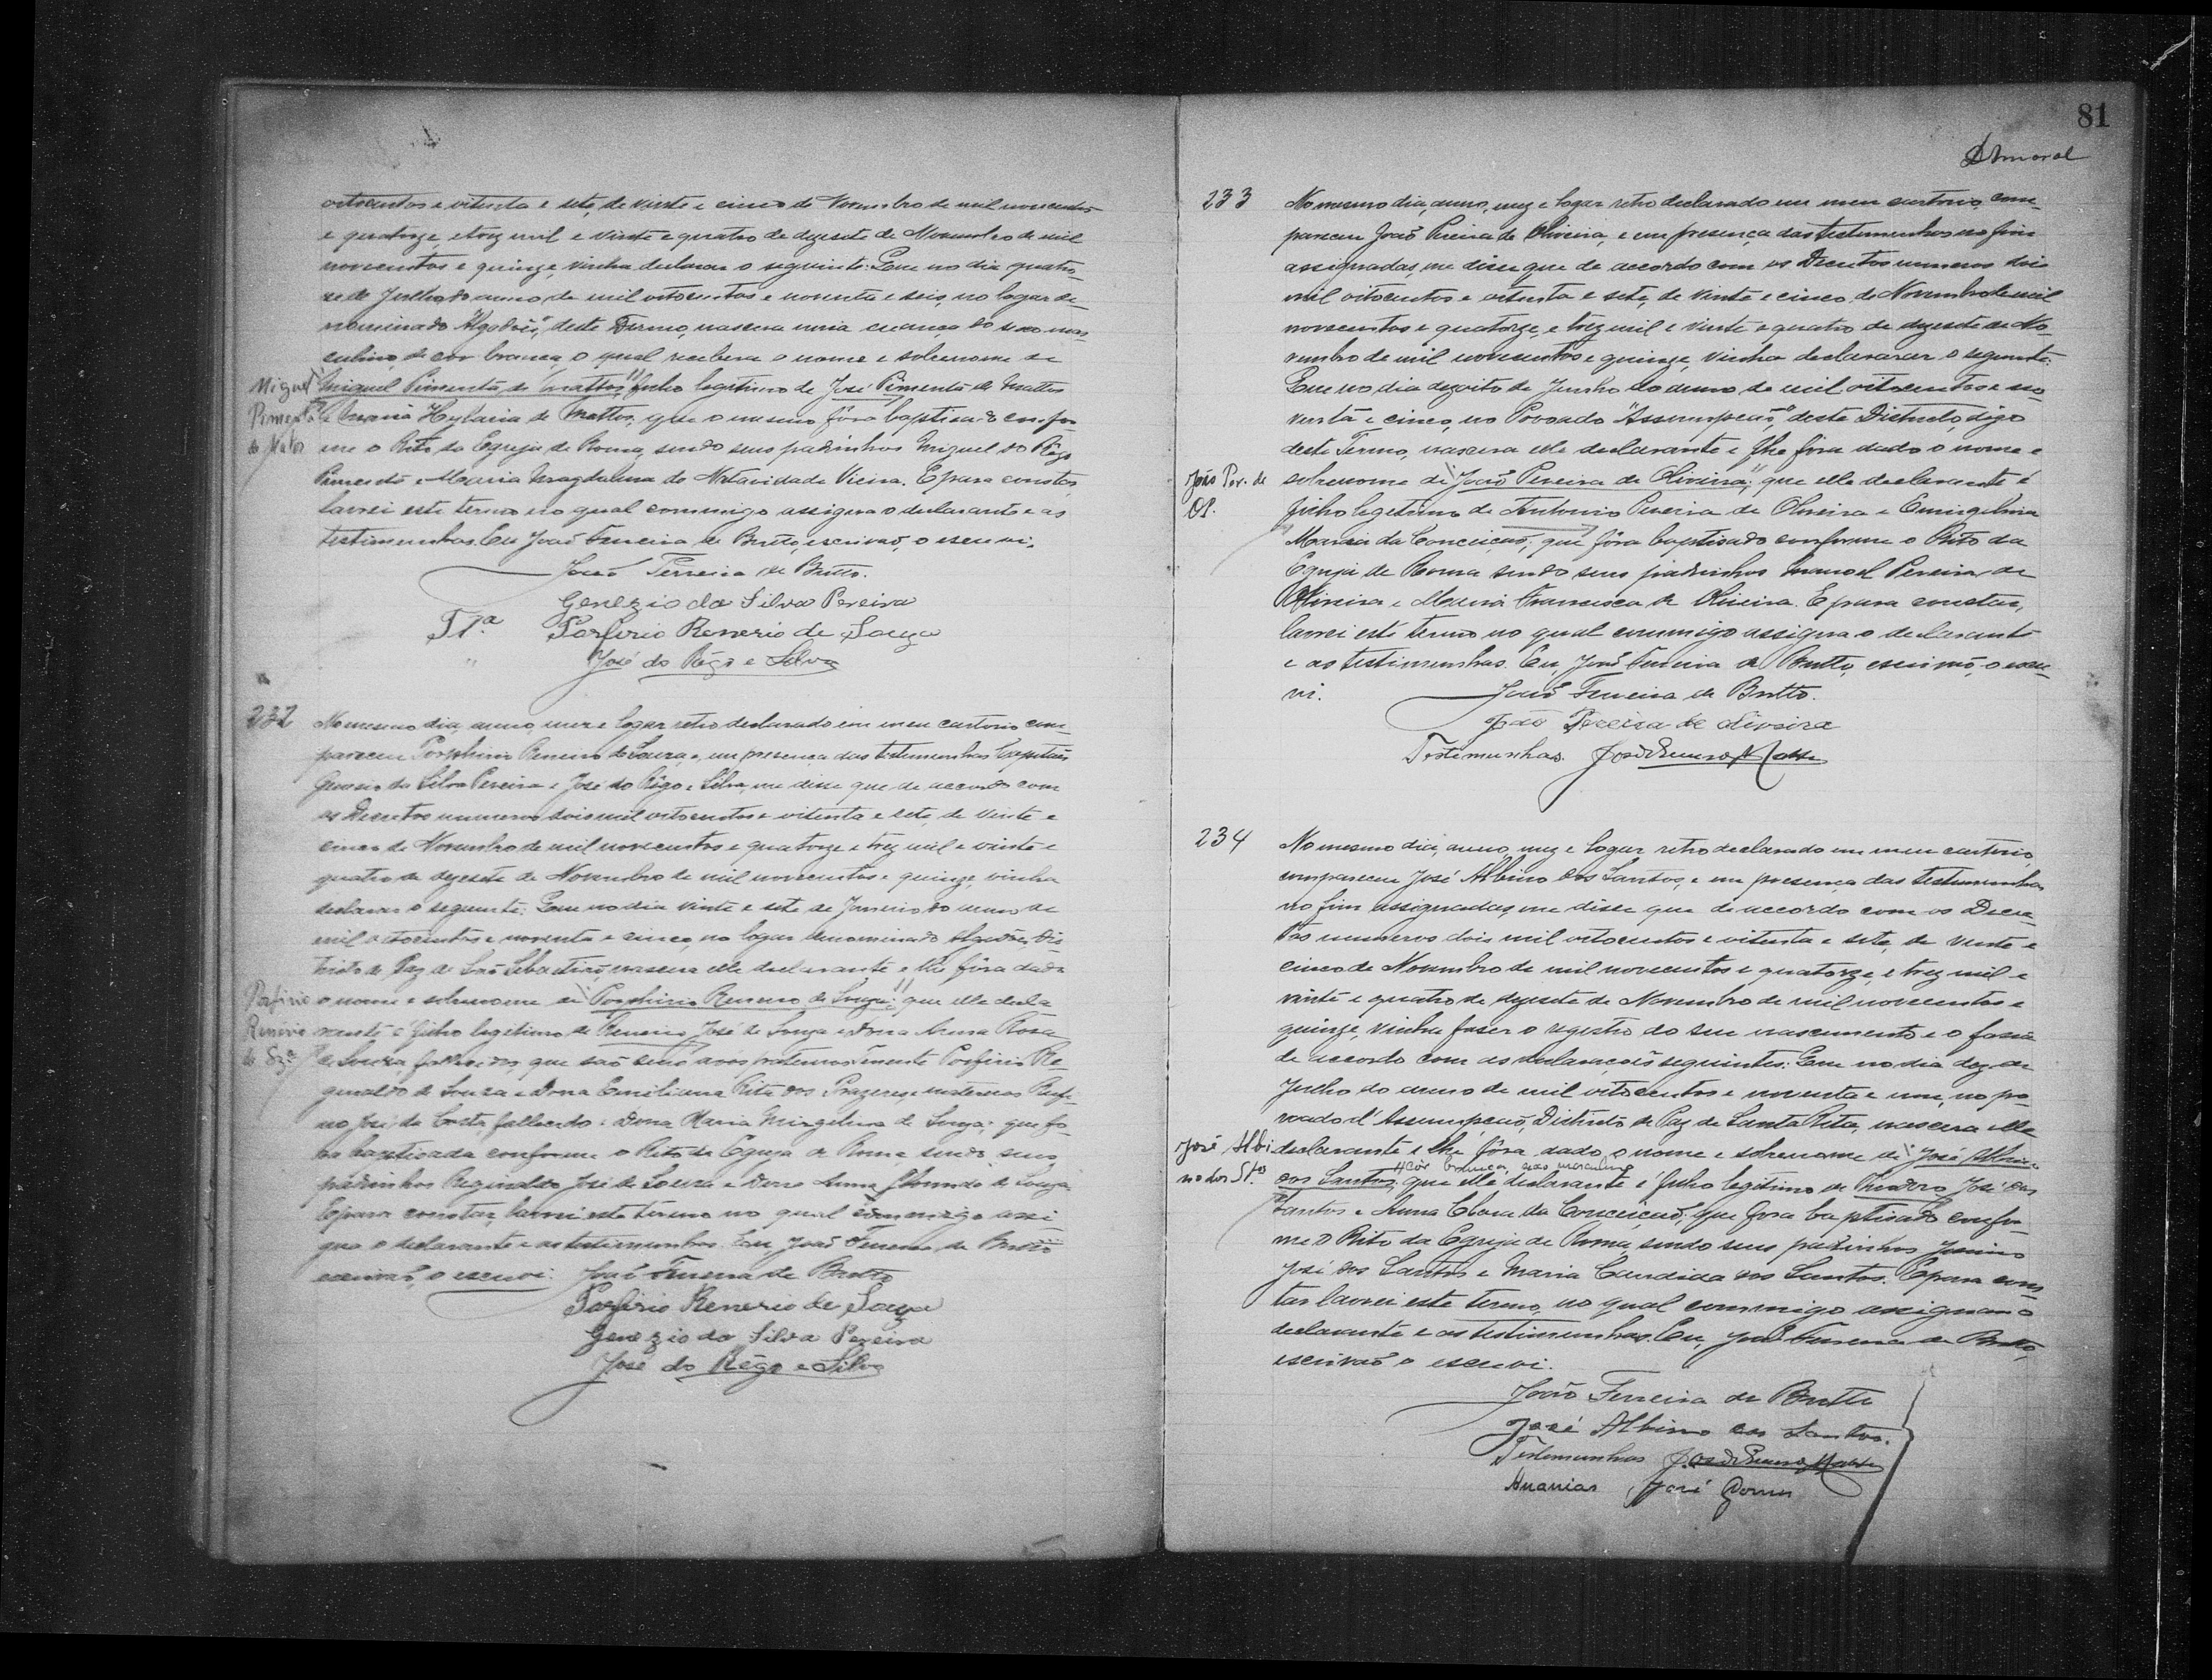 oitocentos e oitenta e sete, de vinte e cinco de Novembro de mil novecentos
e quatorze, e trez mil e vinte e quatro de dezesete de Novembro de mil
novecentos e quinze, vinha declarar o seguinte: Que no dia quator
ze de Julho do anno de mil oitocentos e noventa e seis, no logar de
nominado "Algodões", deste Termo, nascera uma creança do sexo mas
culino, de cor branca, o qual recebera o nome e sobrenome de
Miguel Pimenta de Mattos, filho legitimo de José Pimenta de Mattos
e Maria Hylaria de Mattos; que o mesmo fôra baptisado confor
me o Rito da Egreja de Roma, sendo seus padrinhos Miguel do Rêgo
Pimenta e Maria Magdalena da Natividade Vieira. E para constar,
lavrei este termo no qual commigo assigna o declarante e as
testimunhas. Eu João Ferreira de Britto, escrivão, o escrevi.
Miguel
Pimenta
de Mattos
João Ferreira de Britto.
Genezio da Silva Pereira
Tª. Porfirio Renerio de Souza
" José do Rêgo e Silva
232 No mesmo dia, anno, mez e logar retro declarado em meu cartorio com-
pareceu Porphirio Renerio de Souza, e, em presença das testemunhas Capitão
Genesio da Silva Pereira e José do Rêgo e Silva, me disse que de accordo com
os Decretos numeros dois mil oitocentos e oitenta e sete, de vinte e
cinco de Novembro de mil novecentos e quatorze e trez mil e vinte e
quatro de dezesete de Novembro de mil novecentos e quinze, vinha
declarar o seguinte: Que no dia vinte e sete de Janeiro do anno de
mil oitocentos e noventa e cinco, no logar denominado Algodões, Dis
tricto de Paz de São Sebastião nascera elle declarante e lhe fôra dado
o nome e sobrenome de "Porphirio Renerio de Souza"; que elle decla
rante é filho legitimo de Renerio José de Souza e Dona Anna Rosa
de Souza, que são seus avós paternos Porfirio Re
ginaldo de Souza e Dona Emiliana Rita dos Prazeres, e maternos Rufi
no José da Costa, fallecido e Dona Maria de Souza; que fo
ra baptisado conforme o Rito da Egreja de Roma, sendo seus
padrinhos Reginaldo José de Souza e Dona Anna de Souza.
E para constar, lavrei este termo no qual commigo assi
gna o declarante e as testimunhas. Eu João Ferreira de Britto
escrivão, o escrevi. João Ferreira de Britto
Porfirio
Renerio
de Sza
Porfirio Renerio de Souza
Genezio da Silva Pereira
José do Rêgo e Silva
81
233 No mesmo dia, anno, mez e logar retro declarado em meu cartorio, com-
pareceu João Pereira de Oliveira, e em presença das testemunhas no fim
assignadas, me disse que de accordo com os Decretos numeros dois
mil oitocentos e oitenta e sete, de vinte e cinco de Novembro de mil
novecentos e quatorze, e trez mil e vinte e quatro de dezesete de No
vembro de mil novecentos e quinze, vinha declararar o seguinte:
Que no dia dezoito de Junho do anno de mil oitocentos e no
venta e cinco, no Povoado "Assumpção," deste Districto, digo
deste Termo, nascera elle declarante e lhe fôra dado o nome e
sobrenome de "João Pereira de Oliveira"; que elle declarante é
filho legitimo de Antonio Pereira de Oliveira e
Maria da Conceição, que fôra baptisado conforme o Rito da
Egreja de Roma sendo seus padrinhos Manoel Pereira de
Oliveira e Maria Francisca de Oliveira. E para constar,
lavrei este termo no qual commigo assigna o declarante
e as testimunhas. Eu, João Ferreira de Britto, escrivão, o escre
vi. João Ferreira de Britto.
João Per. de
Ol.
João Pereira de Oliveira
Testimunhas.
234 No mesmo dia, anno, mez e logar retro declarado em meu cartorio,
compareceu José Albino dos Santos, e em presença das testemunhas
no fim assignadas, me disse que de accordo com os Decre-
tos numeros dois mil oitocentos e oitenta e sete, de vinte e
cinco de Novembro de mil novecentos e quatorze, e trez mil e
vinte e quatro de dezesete de Novembro de mil novecentos e
quinze, vinha faser o registro do seu nascimento e o fasia
de accordo com as declarações seguintes: Que no dia dez de
Julho do anno de mil oitocentos e noventa e um, no po
voado d'Assumpção, Districto de Paz de Santa Rita, nascera elle
declarante e lhe fôra dado o nome e sobrenome de "José Albino
côr branca, sexo masculino
dos Santos", que elle declarante é filho legitimo de Theodoro José dos
Santos e Anna Clara da Conceição; que fora baptisado confor
me o Rito da Egreja de Roma, sendo seus padrinhos
José dos Santos e Maria Candida dos Santos. E para cons
tar lavrei este termo, no qual commigo assignam o
declarante e as testimunhas. Eu, João Ferreira de Britto,
escrivão o escrevi.
José Albi
no dos Stos
João Ferreira de Britto
José Albino dos Santos.
Testemunhas
Ananias José Gomes